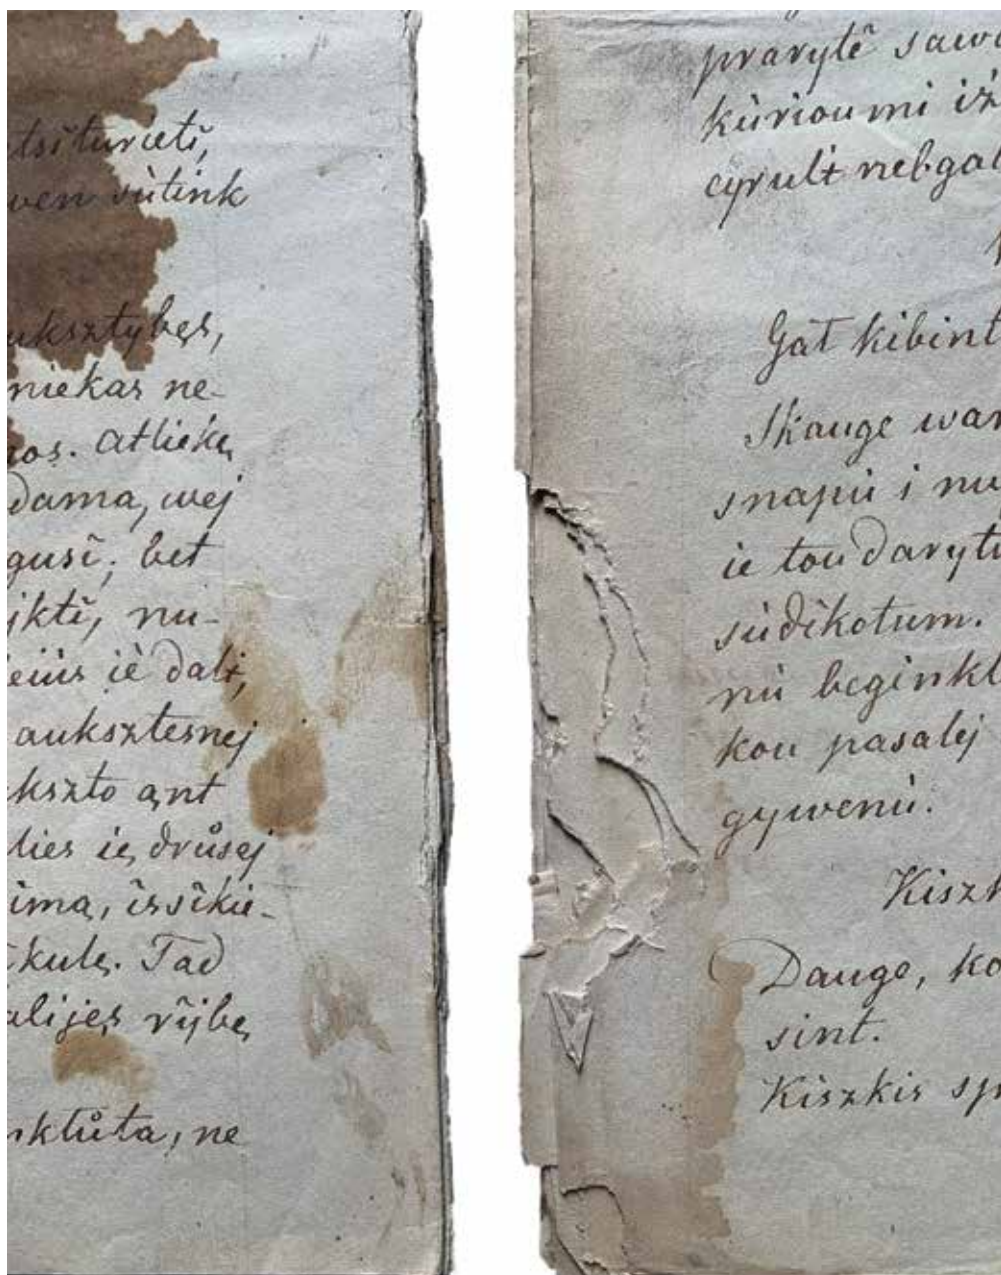 tsĩturėti,
ven sùtink
uksztybęs,
niekas ne-
ros. atlieką
dama, wej
gusĩ; bet
jktĩ, nu-
eiùs iė dalį,
auksztesnej
kszto ant
lies ię drůsej
ima, issĩkie-
kulę. Tad
alijes rĩjbę
nktůta, ne
prarytĕ sawo
kùrioumi iż
cyrulĩ nebgal
Gat kibint
Skauge war
snapù i nu
ie tou darytu
sùdĩkotum.
nù beginkl
kou pasalej
gywenù.
Kiszk
Dauge, ko
sint.
Kiszkis sp